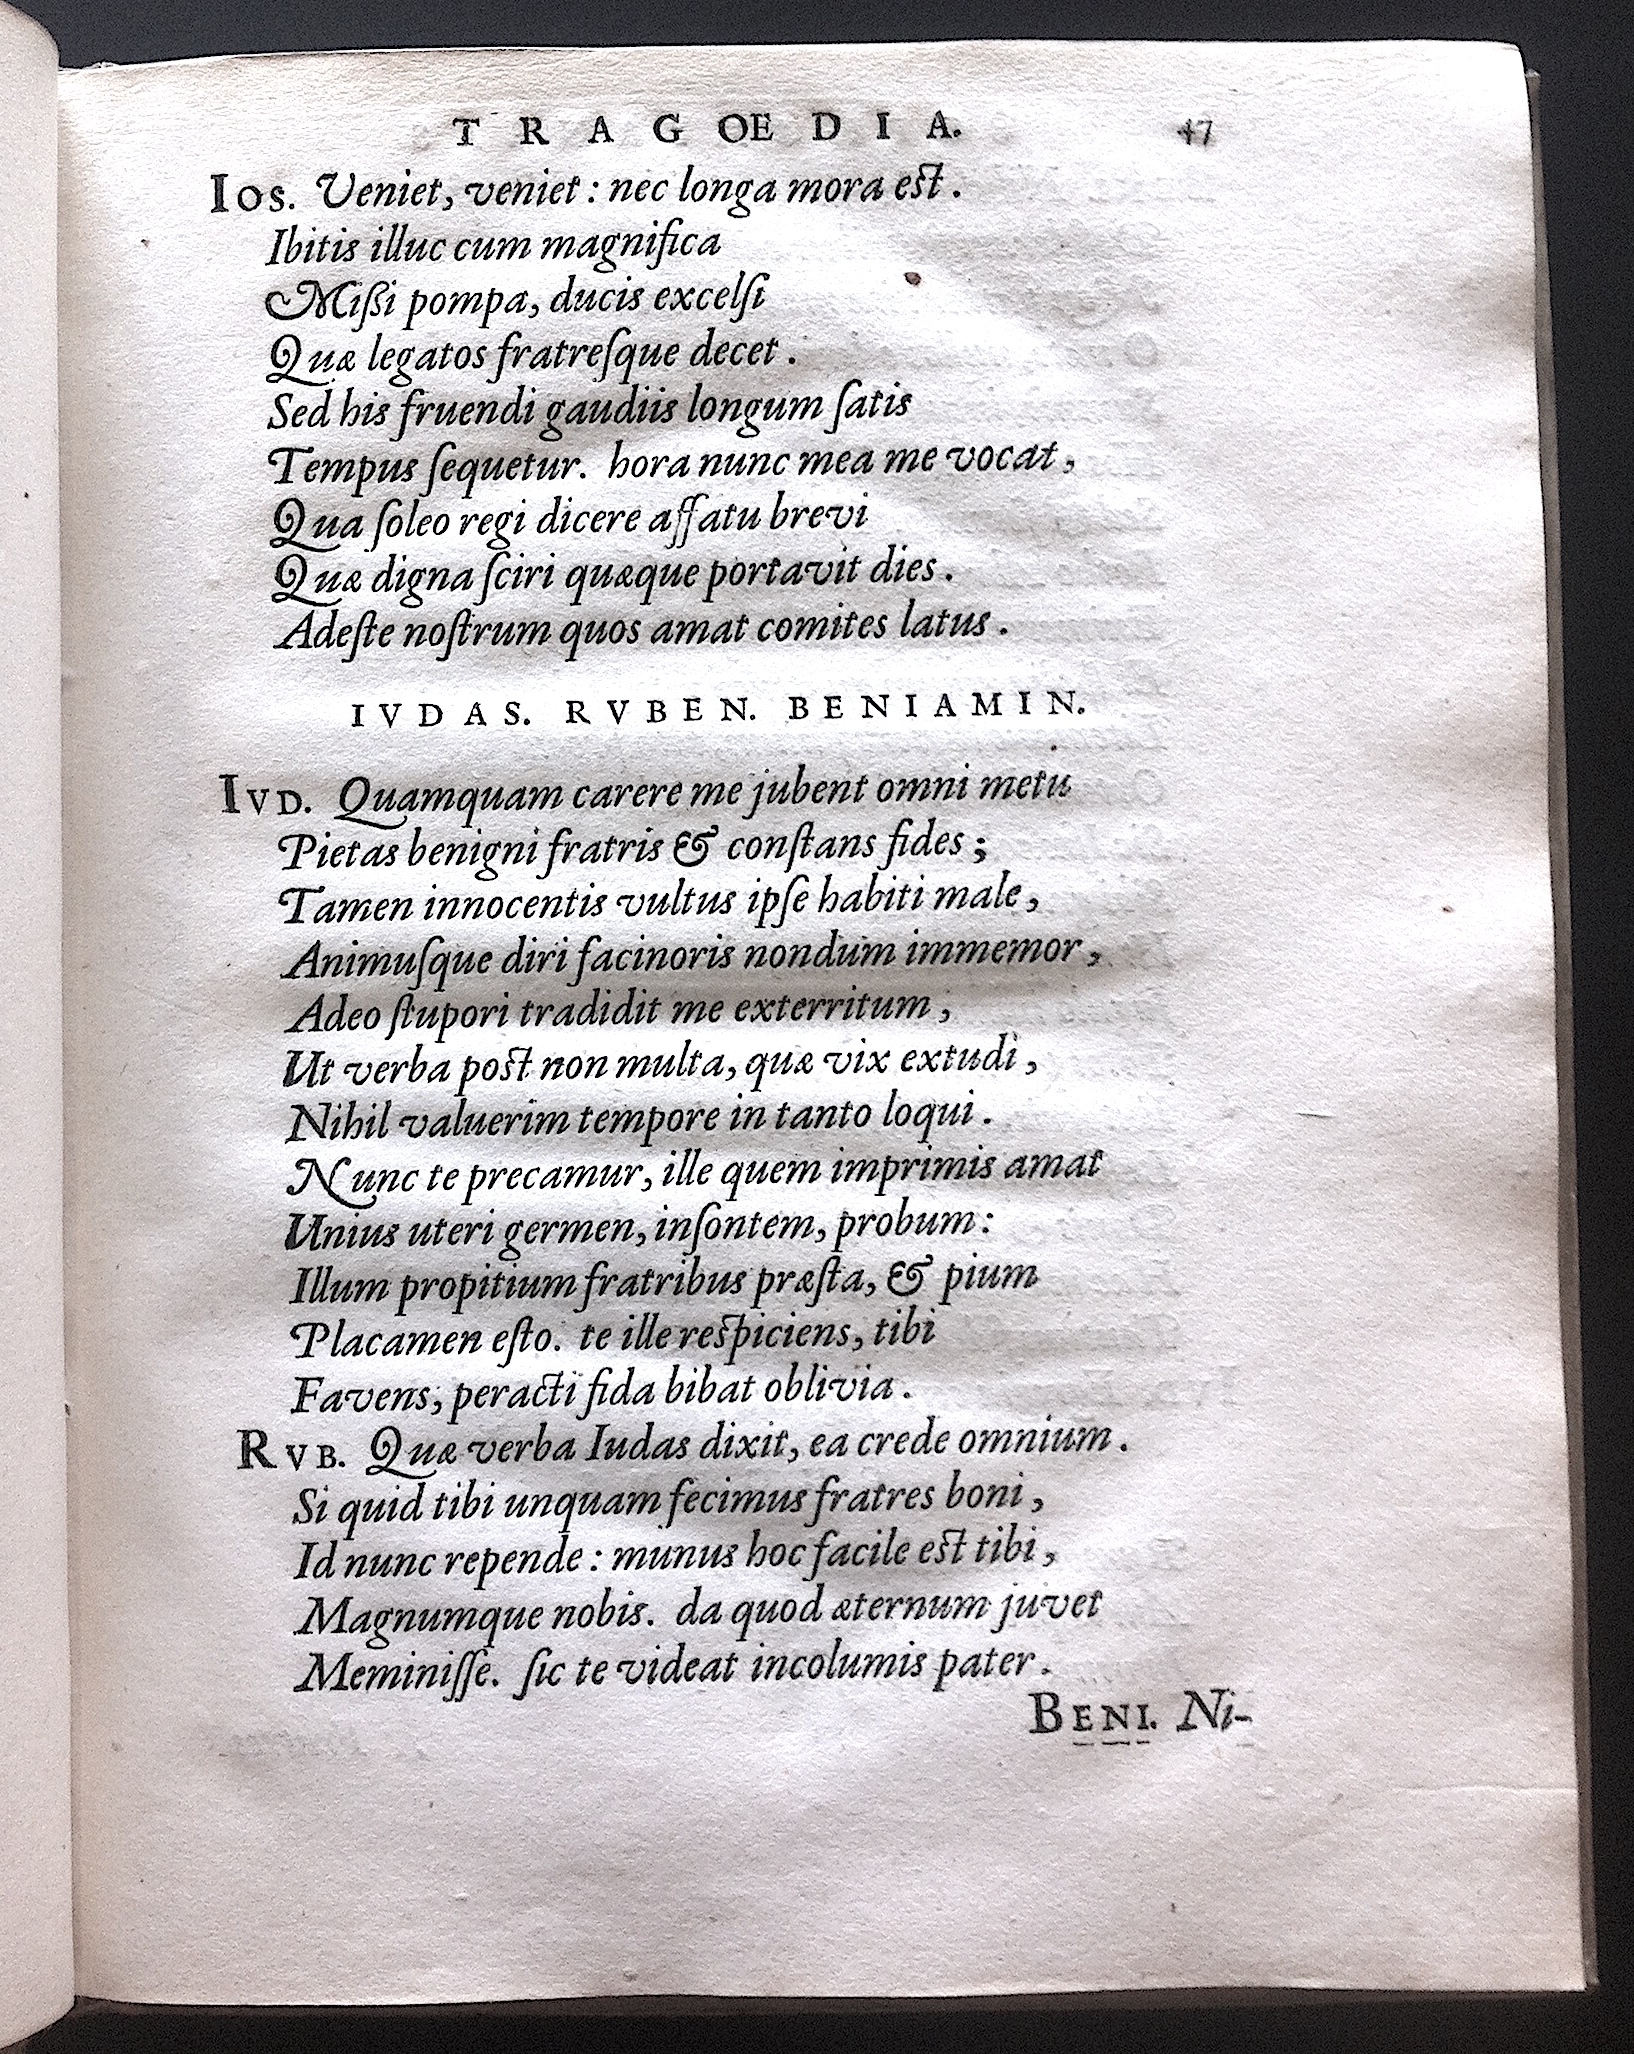 TRAGOEDIA. 47
IOS. Veniet, veniet: nec longa mora est.
Ibitis illuc cum magnifica
Mißi pompa, ducis excelſi
Quæ legatos fratreſque decet.
Sed his fruendi gaudiis longum ſatis
Tempus ſequetur. hora nunc mea me vocat,
Qua ſoleo regi dicere affatu brevi
Quæ digna ſciri quæque portavit dies.
Adeſte noſtrum quos amat comites latus.
IVDAS. RVBEN. BENIAMIN.
IVD. Quamquam carere me jubent omni metu
Pietas benigni fratris & conſtans fides;
Tamen innocentis vultus ipſe habiti male,
Animuſque diri facinoris nondum immemor,
Adeo ſtupori tradidit me exterritum,
Ut verba post non multa, quæ vix extudi,
Nihil valuerim tempore in tanto loqui.
Nunc te precamur, ille quem imprimis amat
Unius uteri germen, inſontem, probum:
Illum propitium fratribus præſta, & pium
Placamen eſto. te ille respiciens, tibi
Favens, peracti fida bibat oblivia.
RVB. Quæ verba Iudas dixit, ea crede omnium.
Si quid tibi unquam fecimus fratres boni,
Id nunc repende: munus hoc facile est tibi,
Magnumque nobis. da quod æternum juvet
Meminiſſe. ſic te videat incolumis pater.
BENI. Ni-